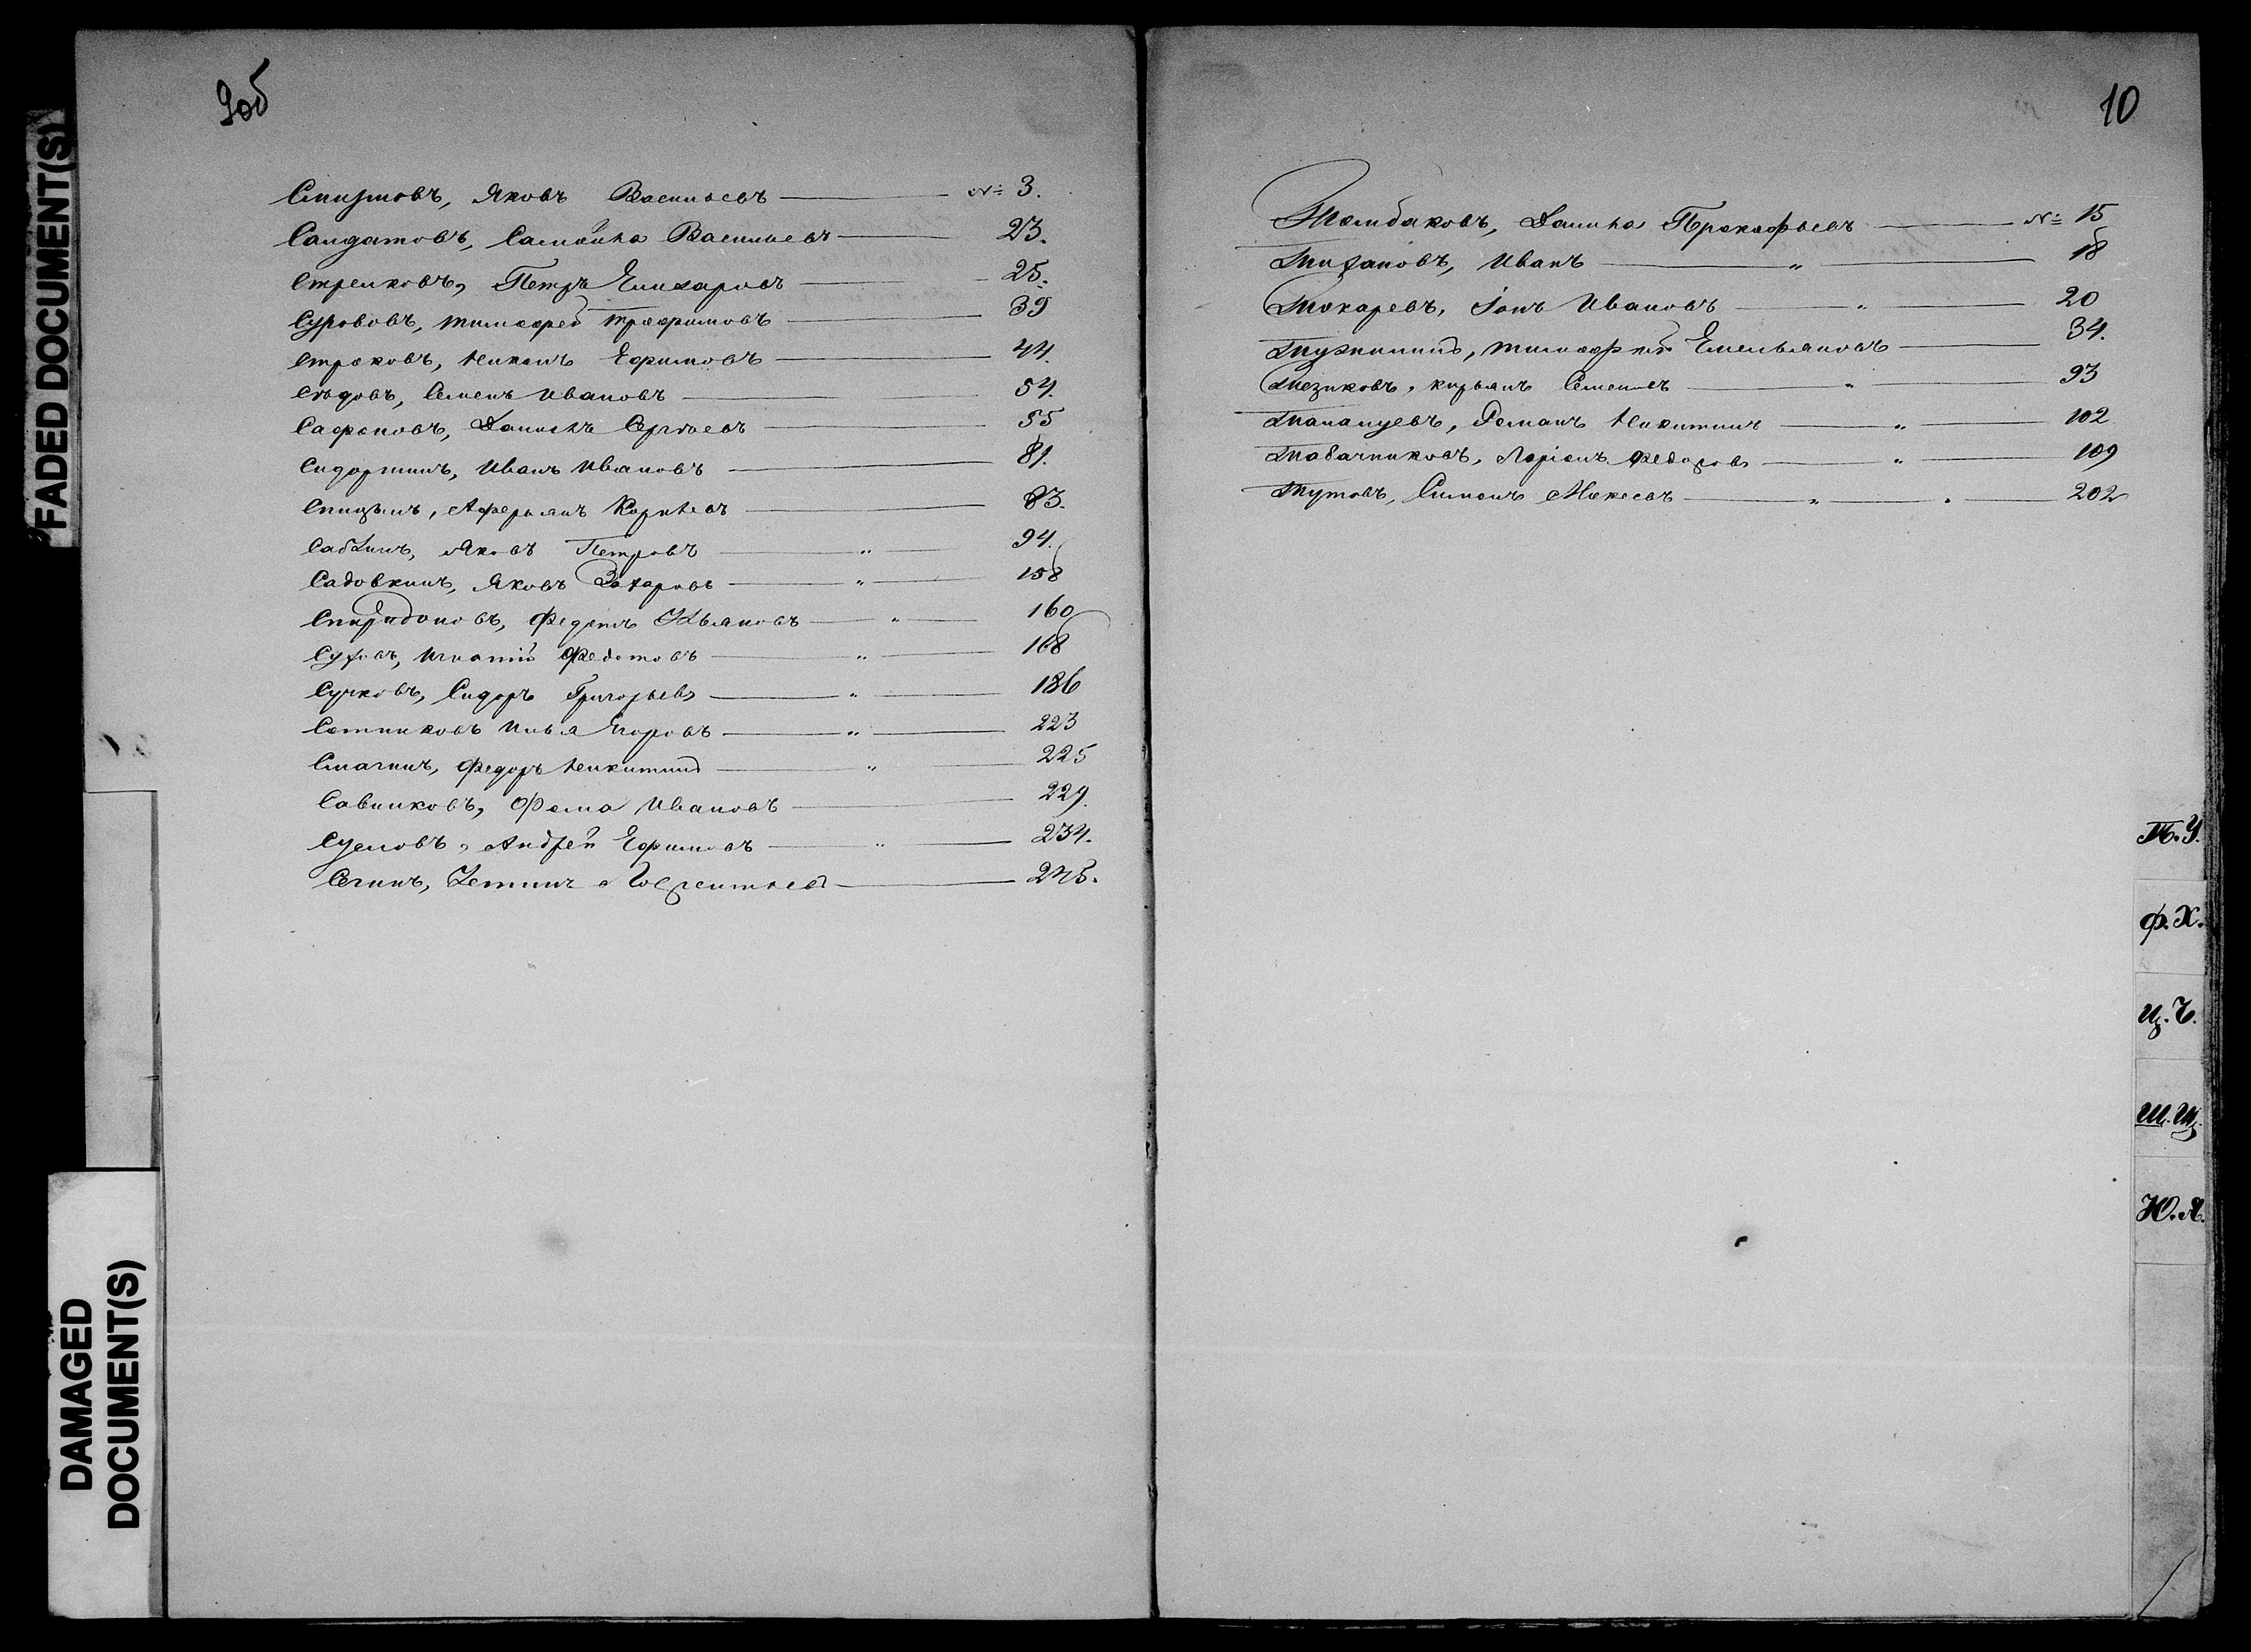 FADED DOCUMENT(S)
DAMAGED
DOCUMENT(S)
9об
Смирновъ, Яковъ Васильевъ № 3.
Салдатовъ, Самойла Васильевъ 23.
Стрелковъ, Петръ Елизаровъ 25.
Сурововъ, Тимофей Трофимовъ 39
Строковъ, Никонъ Ефимовъ 44.
Сѣдовъ, Семенъ Ивановъ 54.
Сафоновъ, Данилъ Сергѣевъ 55
Сидоркинъ, Иванъ Ивановъ 81.
Спицынъ, Аферьянъ Корнѣевъ 83.
Сабкинъ, Яковъ Петровъ „ 94.
Садовкинъ, Яковъ Захаровъ „ 158
Спиридоновъ, Федотъ Ивановъ „ 160
Суховъ, Игнатій Федотовъ „ 168
Сучковъ, Сидоръ Григорьевъ „ 186
Сотниковъ Илья Егоровъ „ 223
Смагинъ, Федоръ Никитинъ „ 225
Савинковъ, Фома Ивановъ 229.
Сусловъ, Андрей Ефимовъ „ 234.
Сечинъ, 245.
10
Томбаковъ, Данила Прокофьевъ № 15
Тихановъ, Иванъ „ 18
Токаревъ, Іонъ Ивановъ „ 20
Тузилинъ, Тимофей Емельяновъ 34.
Тезиковъ, Кирьянъ Семеновъ „ 93
Таналуевъ, Романъ Никитинъ „ 102
Табачниковъ, Ларіонъ Федоровъ „ 109
Тутовъ, Симонъ Мокеевъ „ 202
Т. У.
Ф. Х.
Ц. Ч.
Ш. Щ.
Ю. Я.